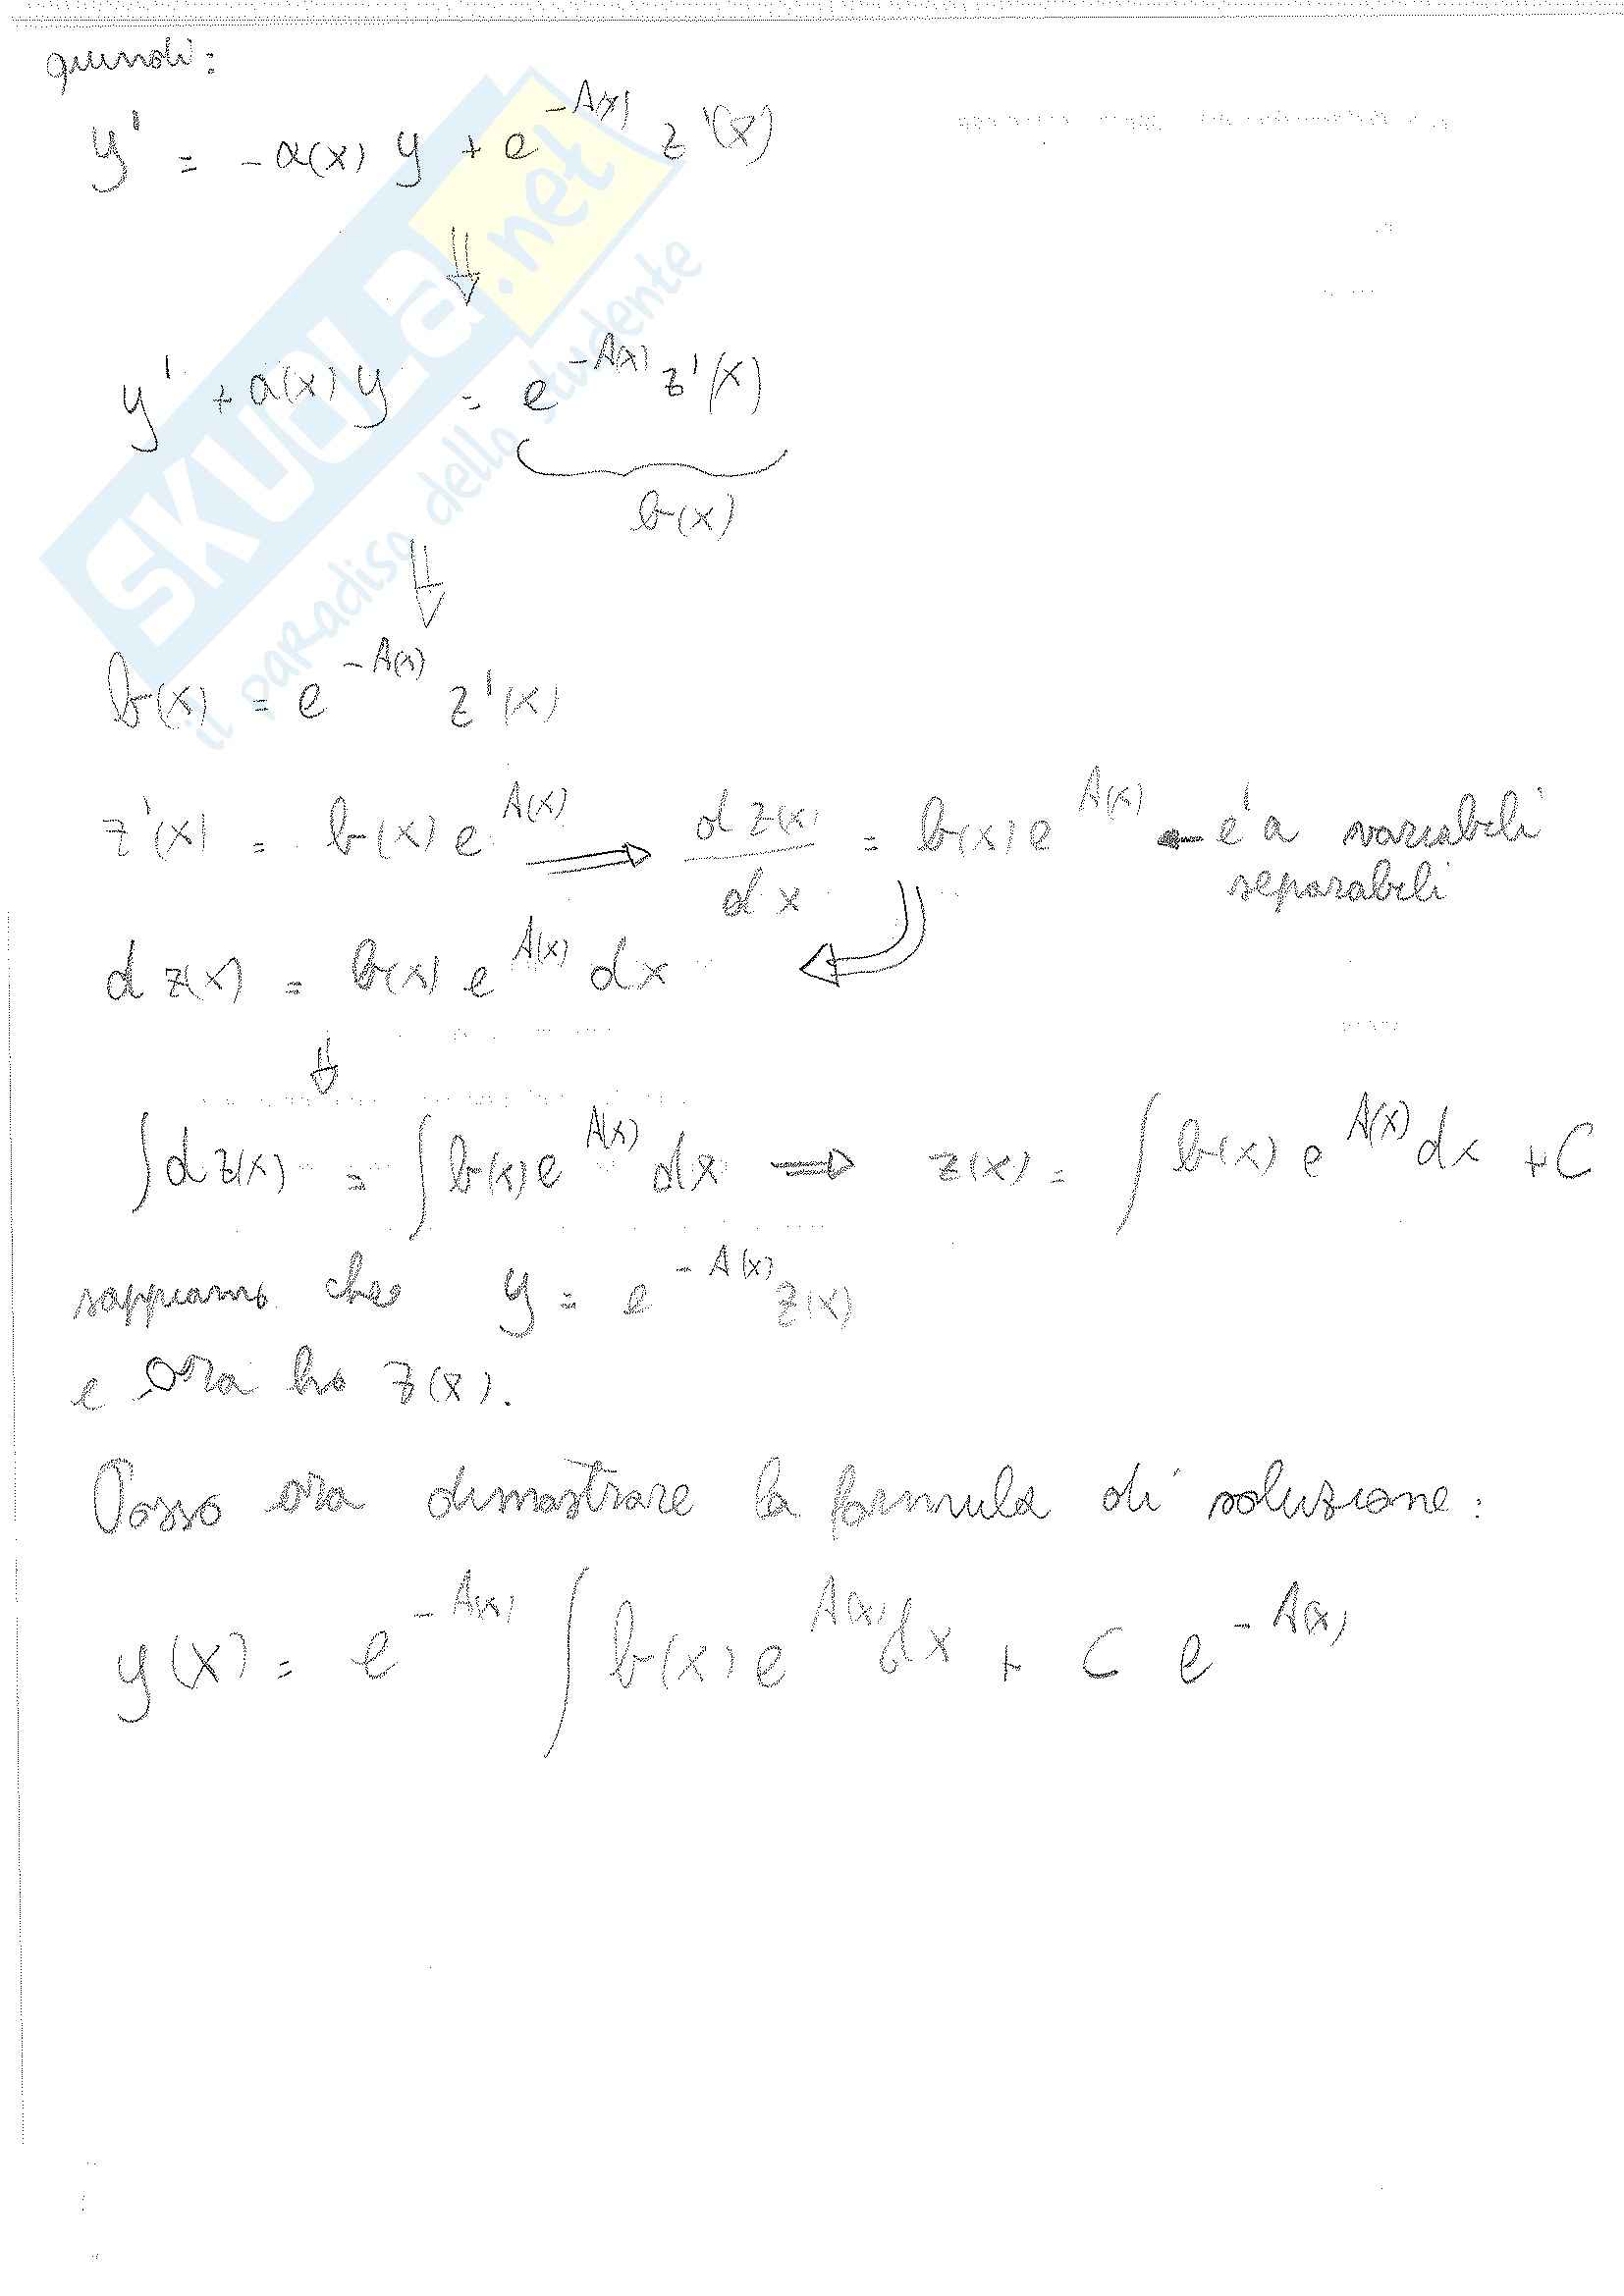 quindi:
y' = -a(x) y + e^{-A(x)} z'(x)
⇓
y' + a(x) y = e^{-A(x)} z'(x)
b(x)
⇓
b(x) = e^{-A(x)} z'(x)
z'(x) = b(x) e^{A(x)} ⟹ dz(x)/dx = b(x) e^{A(x)} ← e' a variabili
separabili
d z(x) = b(x) e^{A(x)} dx
⇓
∫ d z(x) = ∫ b(x) e^{A(x)} dx ⟹ z(x) = ∫ b(x) e^{A(x)} dx + C
sappiamo che y = e^{-A(x)} z(x)
e ora ho z(x).
Posso ora dimostrare la formula di soluzione:
y(x) = e^{-A(x)} ∫ b(x) e^{A(x)} dx + C e^{-A(x)}
SKUOLA.net
il paradiso dello studente